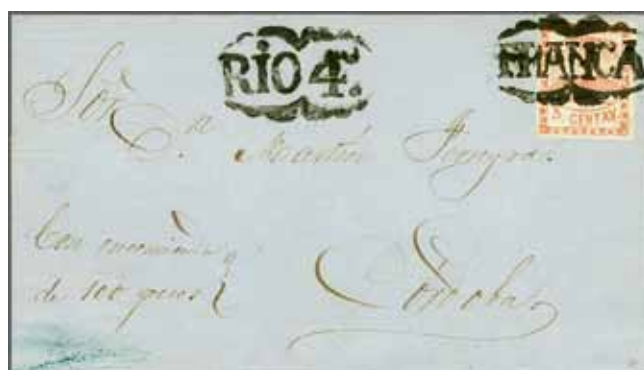 RÍO 4º.
FRANCA
5 CENTAV.
Sor
Dn Martin
Con encomienda
de 100 pesos
Córdoba